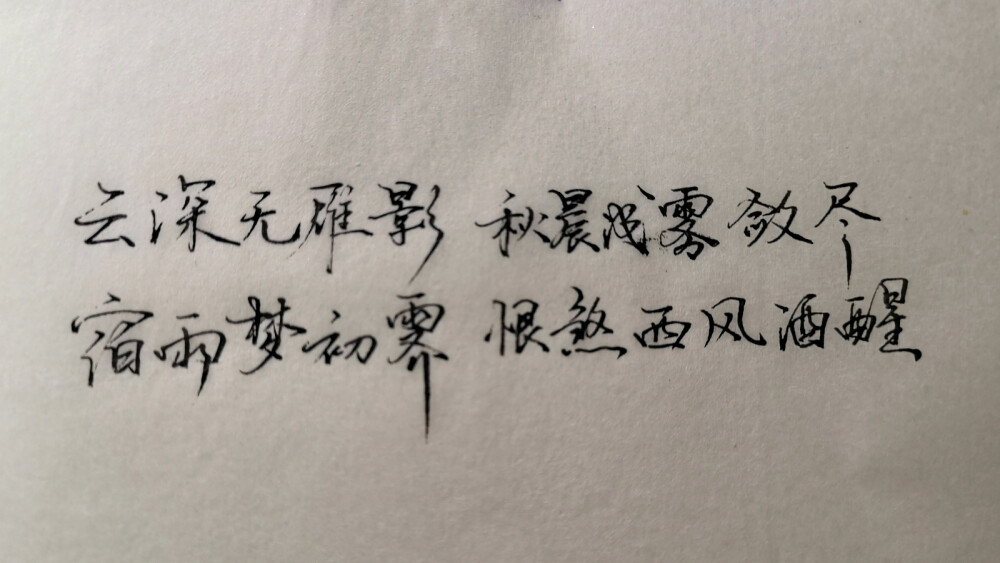 云深无雁影 秋晨浅雾敛尽
宿雨梦初霁 恨煞西风酒醒